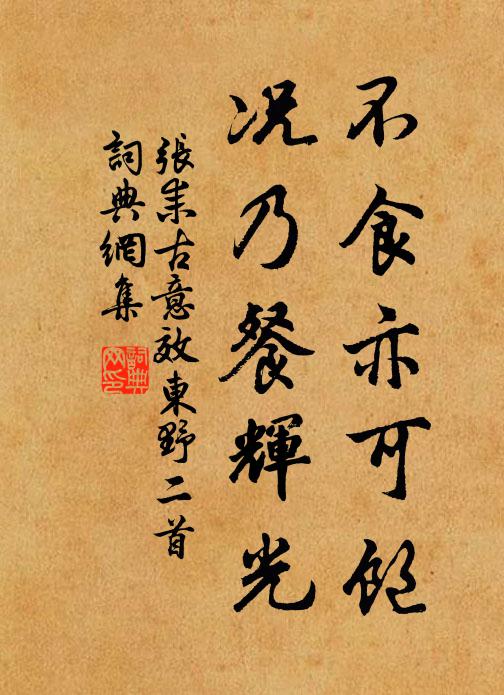 不食亦可飽
况乃餐輝光
張耒古意效東野二首
詞典網集
詞典網印